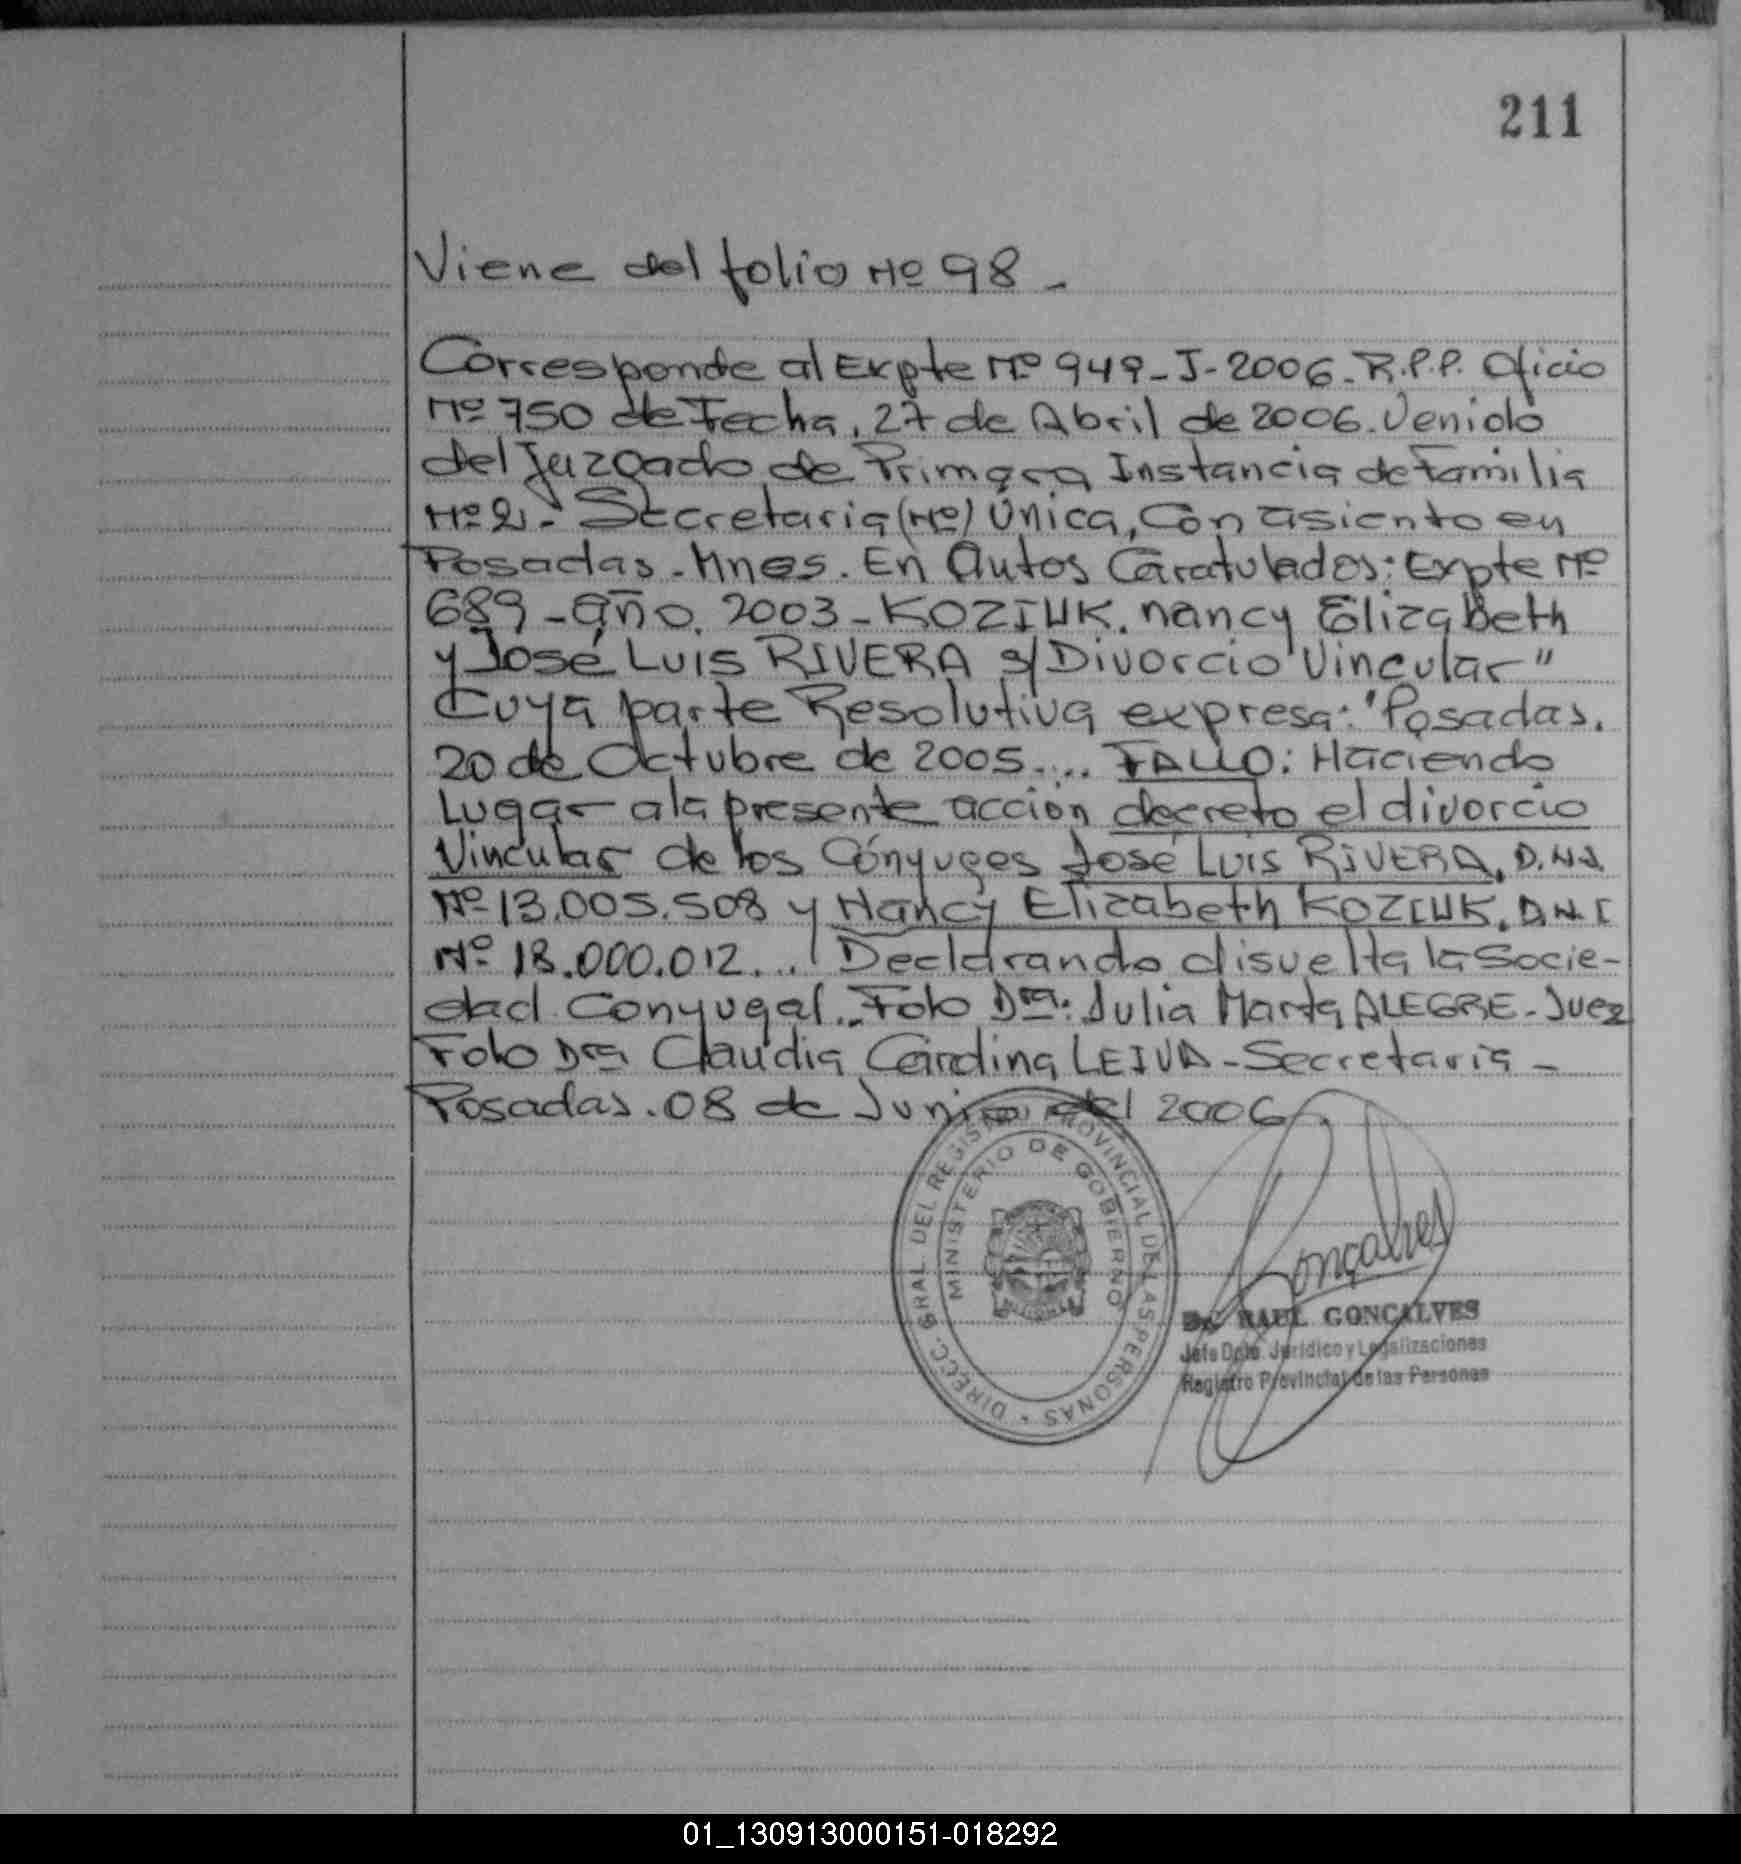 211
Viene del folio Nº 98_
Corresponde al Expte Nº 949_J-2006_R.P.P. Oficio
Nº 750 de Fecha, 27 de Abril de 2006. Venido
del Juzgado de Primera Instancia de Familia
Nº 2_ Secretaria (Nº) Única, Con asiento en
Posadas_Mnes. En Autos Caratulados: Expte Nº
689_año. 2003_KOZIUK. nancy Elizabeth
y José LUIS RIVERA s/Divorcio Vincular"
Cuya parte Resolutiva expresa: "Posadas.
20 de Octubre de 2005.... FALLO: Haciendo
Lugar a la presente acción decreto el divorcio
Vincular de los Cónyuges José Luis RIVERA, D.N.I.
Nº 13.005.508 y Nancy Elizabeth KOZIUK. D.N.I
Nº 18.000.012.... Declarando disuelta la Socie-
dad Conyugal._Fdo Dra: Julia Marta ALEGRE_Juez
Fdo Dra Claudia Carolina LEIVA_Secretaria_
Posadas. 08 de Junio del 2006.
DIRECC. GRAL. DEL REGISTRO PROVINCIAL DE LAS PERSONAS
MINISTERIO DE GOBIERNO
Gonçalves
Dr. RAUL GONCALVES
Jefe Dpto. Jurídico y Legalizaciones
Registro Provincial de las Personas
01_130913000151-018292